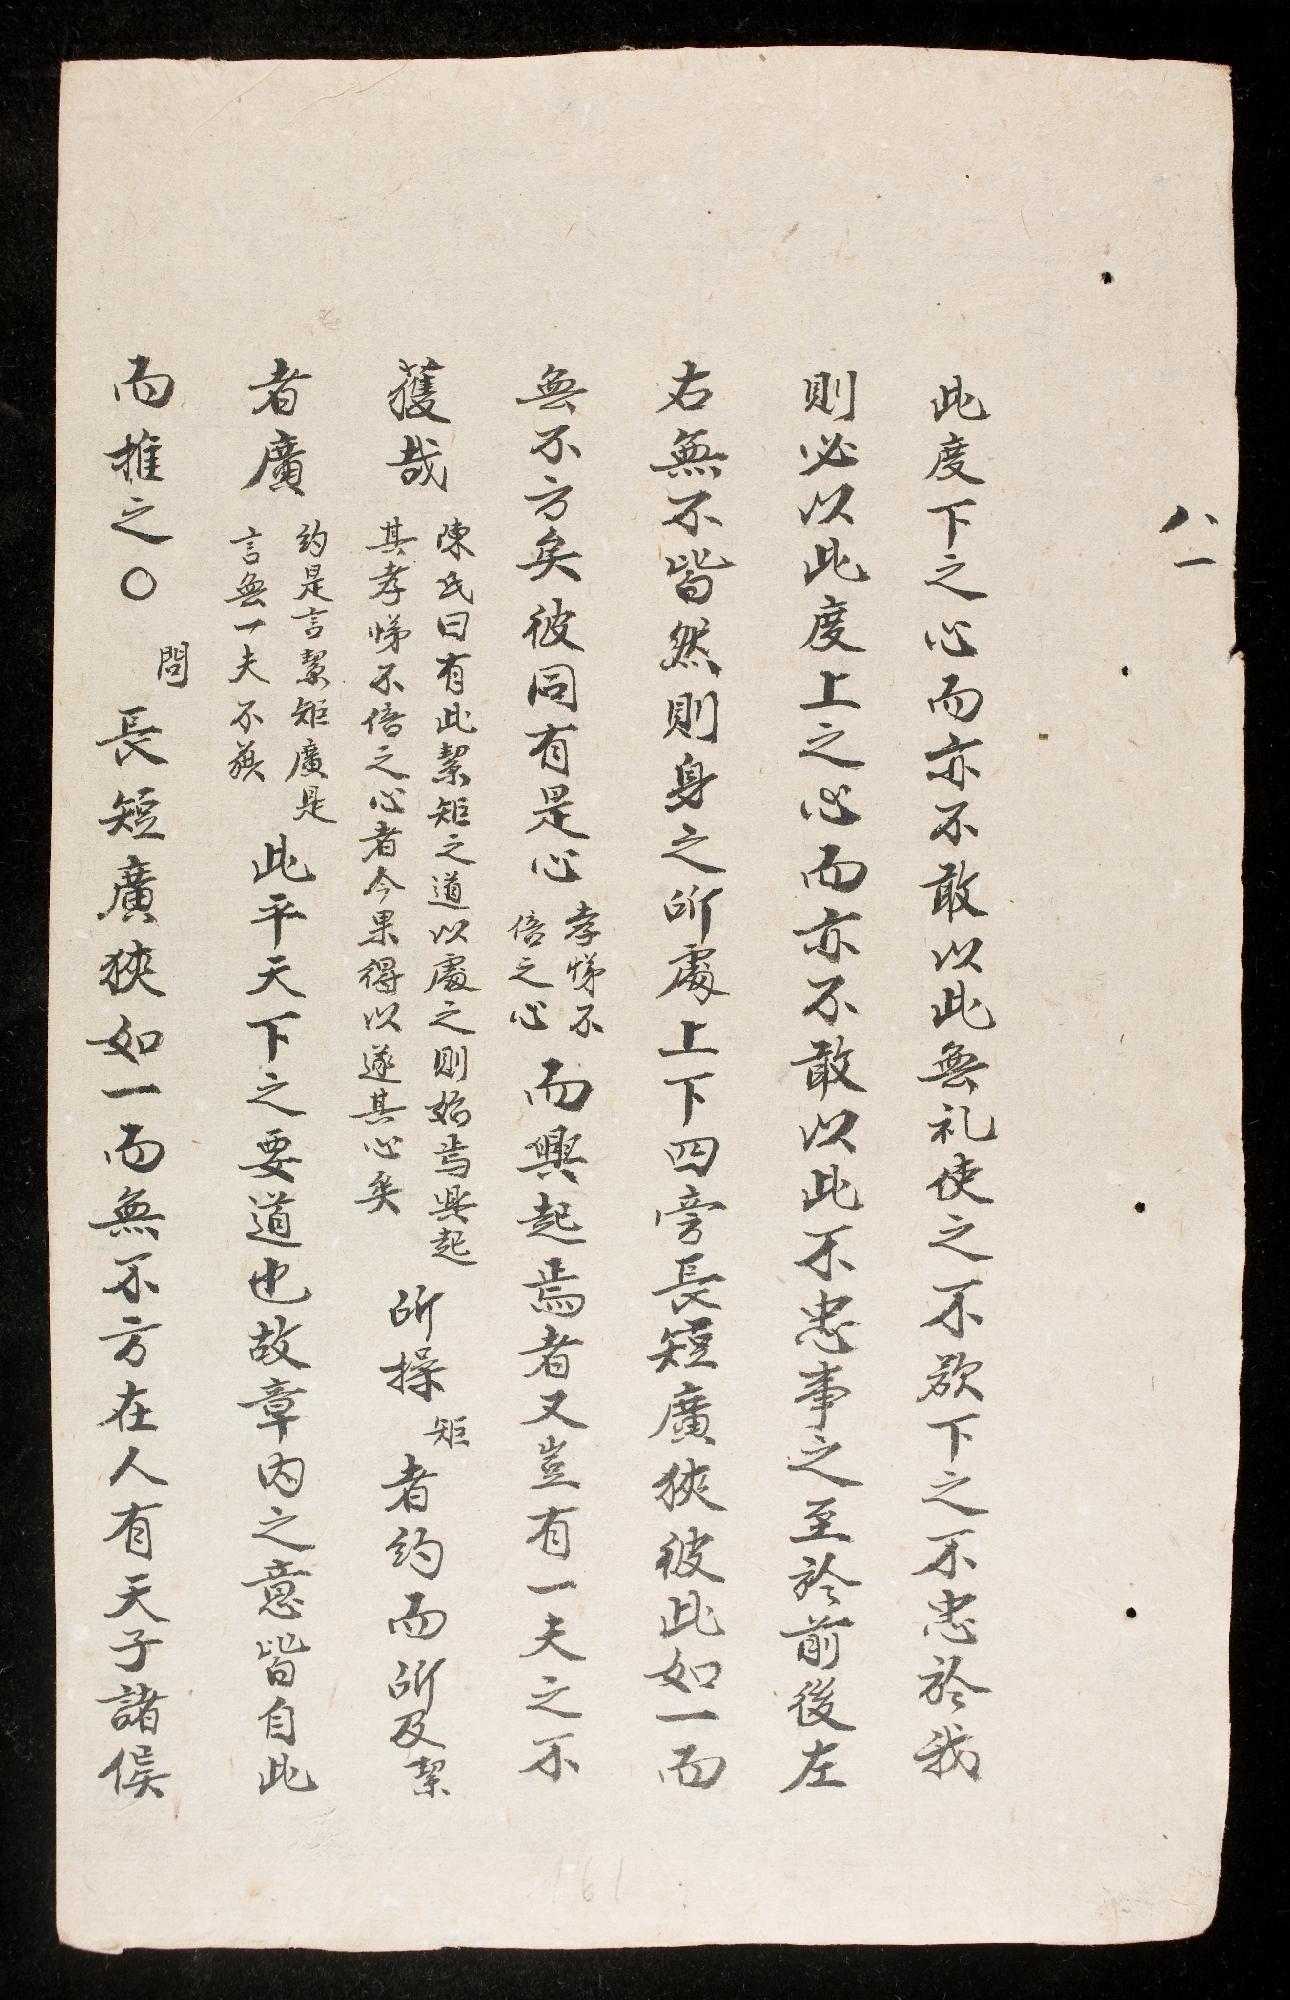 八一
此度下之心而亦不敢以此無礼使之不欲下之不忠於我
則必以此度上之心而亦不敢以此不忠事之至於前後左
右無不皆然則身之所處上下四旁長短廣狹彼此如一而
無不方矣彼同有是心
孝悌不
倍之心
而興起焉者又豈有一夫之不
獲哉
陳氏曰有此絜矩之道以處之則始焉興起
其孝悌不倍之心者今果得以遂其心矣
所操
矩
者約而所及絜
者廣
約是言絜矩廣是
言無一夫不獲
此平天下之要道也故章内之意皆自此
而推之〇
問
長短廣狹如一而無不方在人有天子諸侯
161